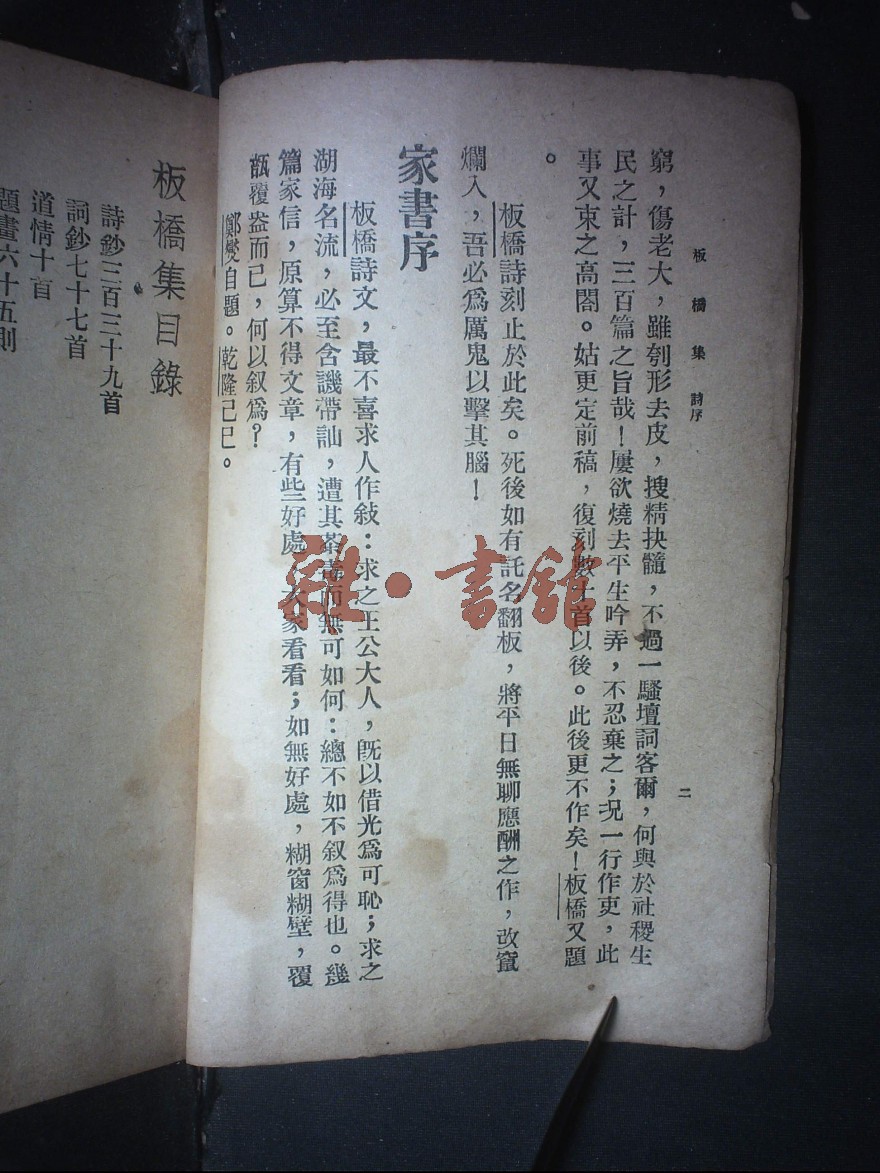 板橋集 詩序
二
窮，傷老大，雖刳形去皮，搜精抉髓，不過一騷壇詞客爾，何與於社稷生
民之計，三百篇之旨哉！屢欲燒去平生吟弄，不忍棄之；況一行作吏，此
事又束之高閣。姑更定前稿，復刻數十首以後。此後更不作矣！板橋又題
。
板橋詩刻止於此矣。死後如有託名翻板，將平日無聊應酬之作，改竄
爛入，吾必爲厲鬼以擊其腦！
家書序
板橋詩文，最不喜求人作敍：求之王公大人，旣以借光爲可恥；求之
湖海名流，必至含譏帶訕，遭其荼毒而無可如何：總不如不叙爲得也。幾
篇家信，原算不得文章，有些好處，大家看看；如無好處，糊窗糊壁，覆
瓿覆盎而已，何以叙爲？
鄭燮自題。乾隆己巳。
板橋集目錄
詩鈔三百三十九首
詞鈔七十七首
道情十首
題畫六十五則
雜·書館